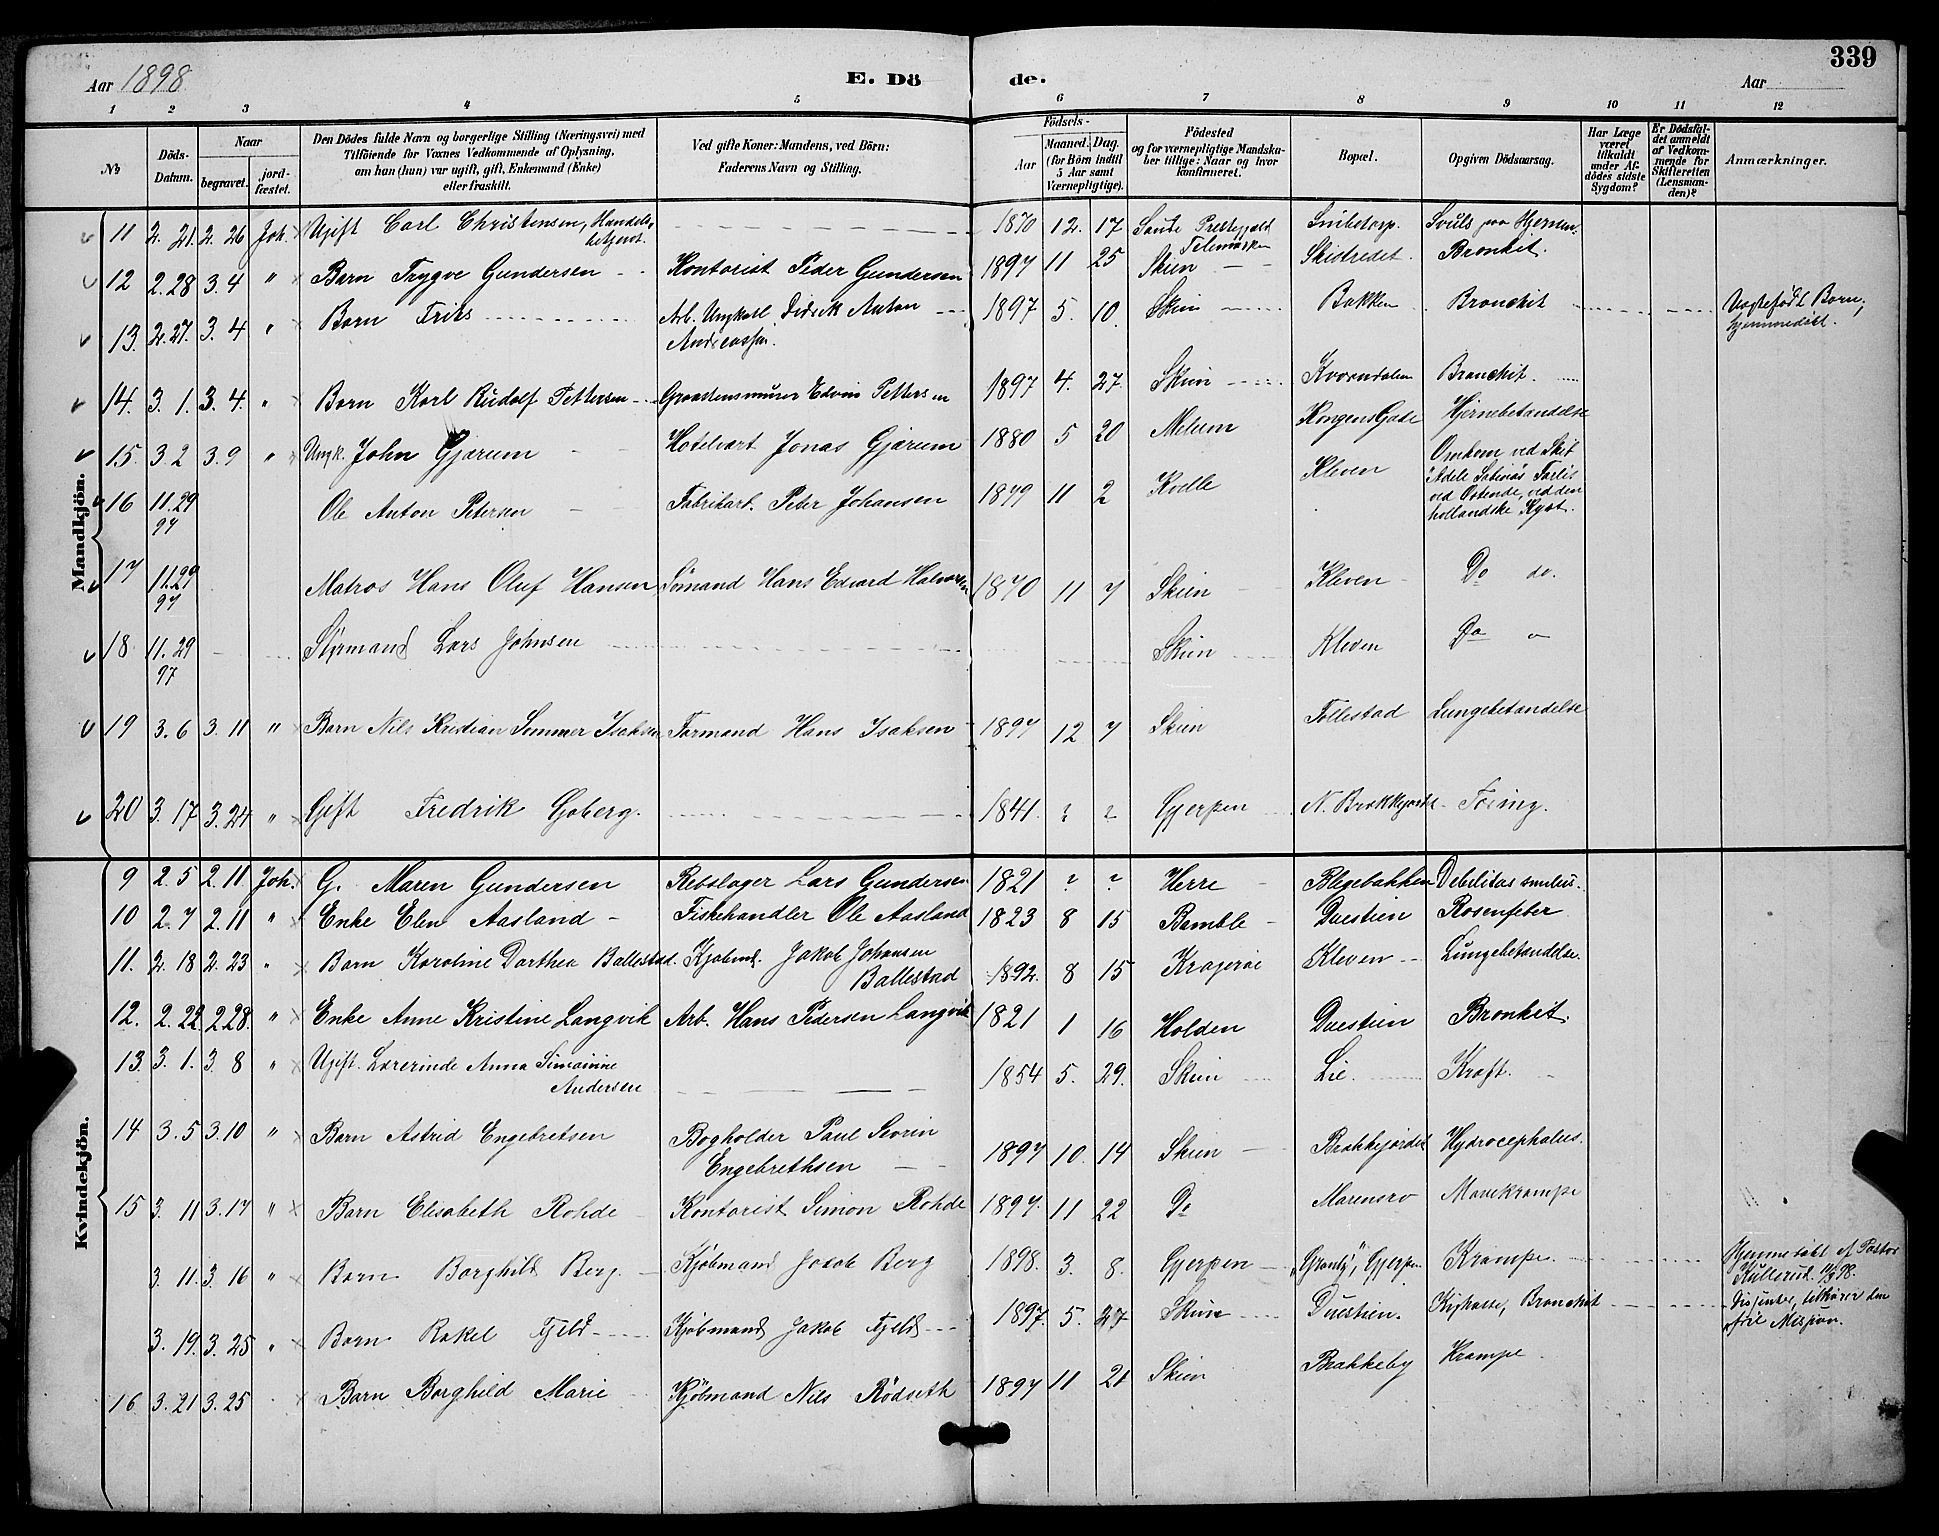 339
Aar 1898 E. Dö de. Aar
1 2 3 4 5 6 7 8 9 10 11 12
№ Döds-Datum. Naar begravet. jord-fæstet. Den Dödes fulde Navn og borgerlige Stilling (Næringsvei) med Tilföiende for Voxnes Vedkommende af Oplysning, om han (hun) var ugift, gift, Enkemand (Enke) eller fraskilt. Ved gifte Koner: Mandens, ved Börn: Faderens Navn og Stilling. Födsels- Aar Maaned. Dag. (for Börn indtil 5 Aar samt Værnepligtige). Födested og for værnepligtige Mandskaber tillige: Naar og hvor konfirmeret. Bopæl. Opgiven Dödsaarsag. Har Læge været tilkaldt under Afdödes sidste Sygdom? Er Dödsfaldet anmeldt af Vedkommende for Skifteretten (Lensmanden)? Anmærkninger.
Mandkjön.
11 2. 21 2. 26 Joh. Ugift Carl Christensen, Handelsbetjent. 1870 12. 17 Saude Prestegjeld Telemarken Snibetorp. Svulst paa Hjernen.
12 2.28 3.4 " Barn Trygve Gundersen Kontorist Peder Gundersen 1897 11 25 Skien Skistredet. Bronkit.
13. 2.27. 3.4 " Barn Friks Arb. Ungkarl Didrik Anton Andreassen. 1897 5. 10. Skien Bakken Bronchit Uægtefødt Barn, hjemmedøbt.
14. 3. 1. 3. 4. " Barn Karl Rudolf Pettersen Graastensmurer Edvin Pettersen 1897 4. 27. Skien Kværndalen Bronchit.
15. 3 2 3. 9 " Ungk. John Gjærum Hotelvært Jonas Gjærum 1880 5 20 Melum Kongens Gade Hjernebetændelse
16 11.29 97 Ole Anton Petersen Fabrikarb. Peter Johansen 1879 11 2 Kleven Omkom ved Skib "Adele Sabinas" Forlis ved Ostende, ved den hollandske Kyst.
17 11.29 97 Matros Hans Oluf Hansen Sömand Hans Edvard Halvorsen 1870 11 7 Skien Kleven Do do.
18 11.29 97 Styrmand Lars Johnsen Skien Kleven Do "
19 3. 6 3. 11 " Barn Nils Kristian Sommer Isaksen Formand Hans Isaksen 1897 12 7 Skien Follestad Lungebetændelse
20 3. 17 3. 24 " Gift Fredrik Gjøberg. 1841. ? ? Gjerpen N. Brækkejordet Tæring.
Kvindekjön.
9 2. 5 2. 11 Joh. G. Maren Gundersen Rebslager Lars Gundersen 1821 ? ? Herre Blegebakken Debilitas senilis.
10 2. 7 2. 11 " Enke Elen Aasland Fiskehandler Ole Aasland 1823 8 15 Bamble Duestien Rosenfeber
11. 2. 18 2. 23 " Barn Karoline Dorthea Ballestad. Kjøbmd. Jakob Johansen Ballestad 1892. 8 15 Kragerøe Kleven Lungebetændelse.
12. 2. 22. 2.28. " Enke Anne Kristine Langvik Arb. Hans Pedersen Langvik 1821 1 16 Holden Duestien Bronkit.
13. 3. 1. 3. 8 " Ugift. Lærerinde Anna Simonine Andersen 1854 5. 29. Skien Lie. Kræft.
14 3. 5 3.10 " Barn Astrid Engebretsen Bogholder Paul Severin Engebrethsen 1897 10. 14 Skien Brækkejordet Hydrocephalus.
15 3. 11 3.17 " Barn Elisabeth Rohde Kontorist Simon Rohde 1897. 11 22 Do Marensro Mavekrampe
3. 11. 3. 16 " Barn Borghild Berg. Kjöbmand Jacob Berg 1898. 3. 8. Gjerpen "Granly", Gjerpen Krampe. Hjemmedøbt af Pastor Kullerud. 11/3 98.
3. 19. 3. 25 " Barn Rakel Fjeld Kjöbmand Jakob Fjeld 1897 5. 27 Skien Duestien. Kighoste, Bronchit Dissenter, tilhører den frie Misjon.
16 3. 21 3. 25 Barn Borghild Marie Kjöbmand Nils Rödseth 1897 11 21 Skien Brækkeby Krampe